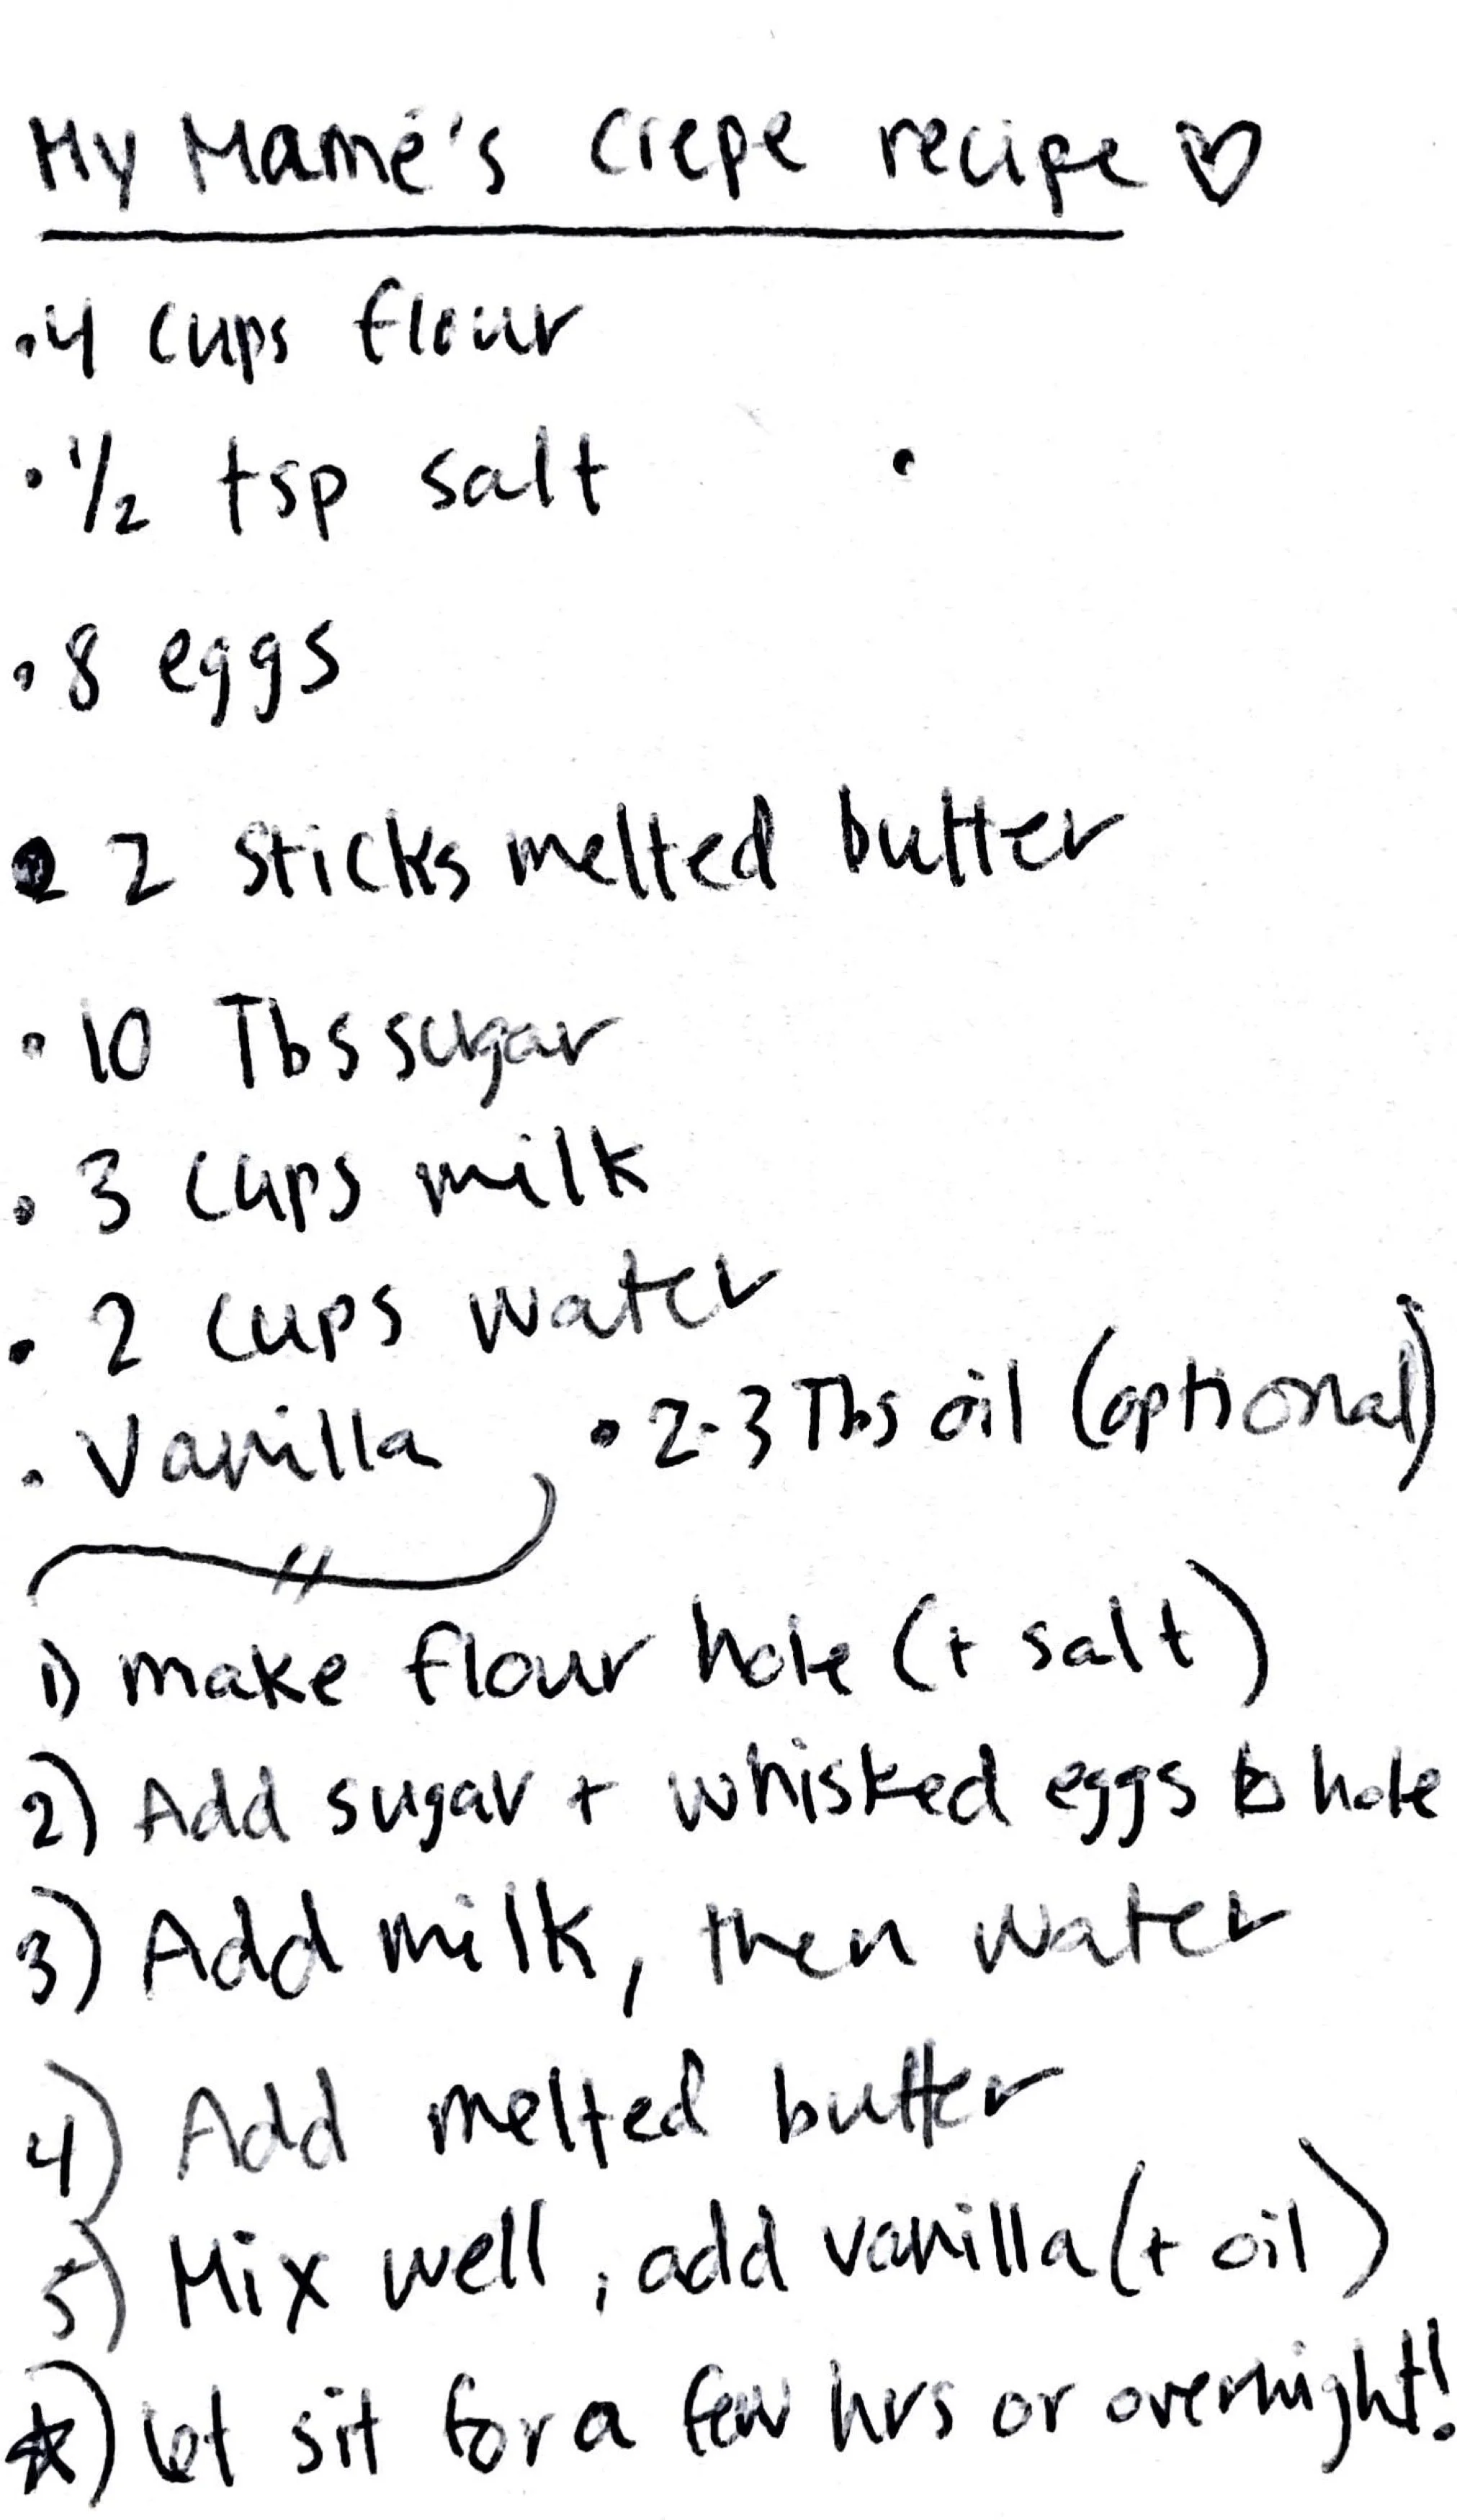 My Mamé's crepe recipe ♡
• 4 cups flour
• 1/2 tsp salt
• 8 eggs
• 2 sticks melted butter
• 10 Tbs sugar
• 3 cups milk
• 2 cups water
• Vanilla • 2-3 Tbs oil (optional)
1) make flour hole (+ salt)
2) Add sugar + whisked eggs to hole
3) Add milk, then water
4) Add melted butter
5) Mix well, add vanilla (+ oil)
*) let sit for a few hrs or overnight!